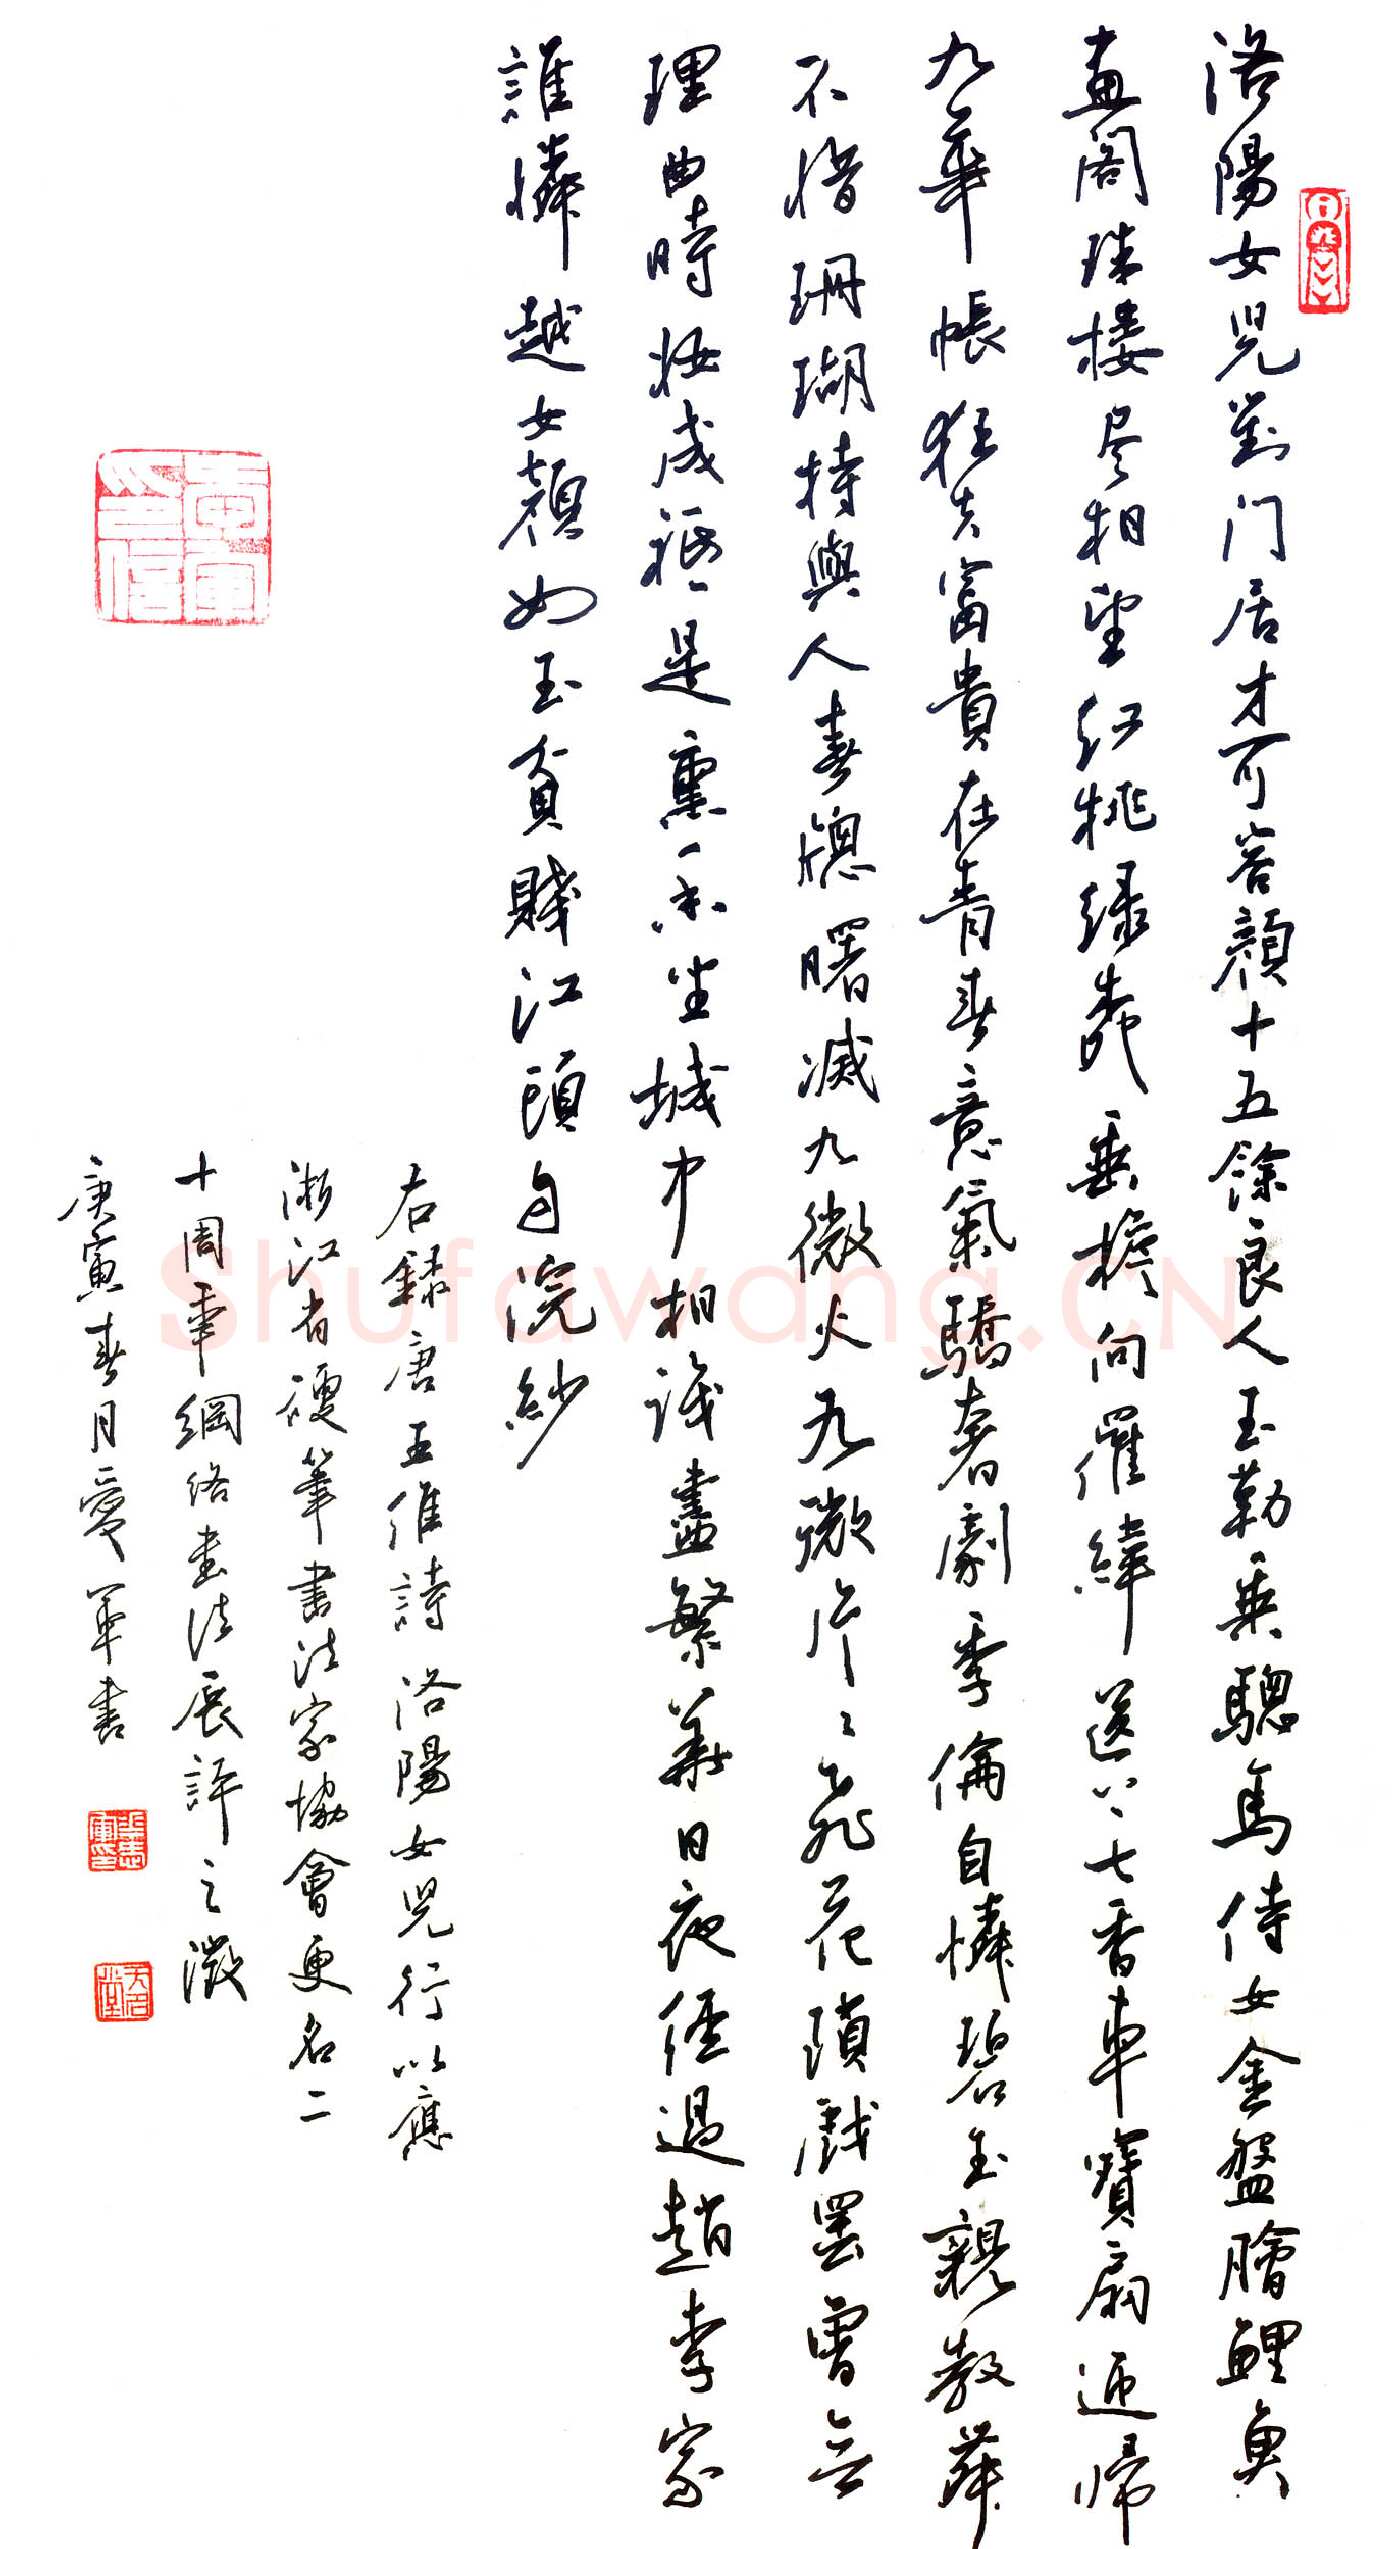 洛陽女兒對门居才可容顏十五餘良人玉勒乘驄馬侍女金盤膾鯉魚
畫阁珠樓尽相望红桃绿柳垂檐向羅緯送上七香車寶扇迎歸
九華帳狂夫富貴在青春意氣驕奢劇季倫自憐碧玉親教舞
不惜珊瑚持與人春牕曙滅九微火九微片々飛花瑣戲罷曾無
理曲時妝成祗是熏香坐城中相識盡繁華日夜經過趙李家
誰憐越女顏如玉貧賤江頭自浣紗
右錄唐王維詩洛陽女兒行以應
浙江省硬筆書法家協會更名二
十周年網络書法展評之徵
庚寅春月愛軍書
Shufawang.CN